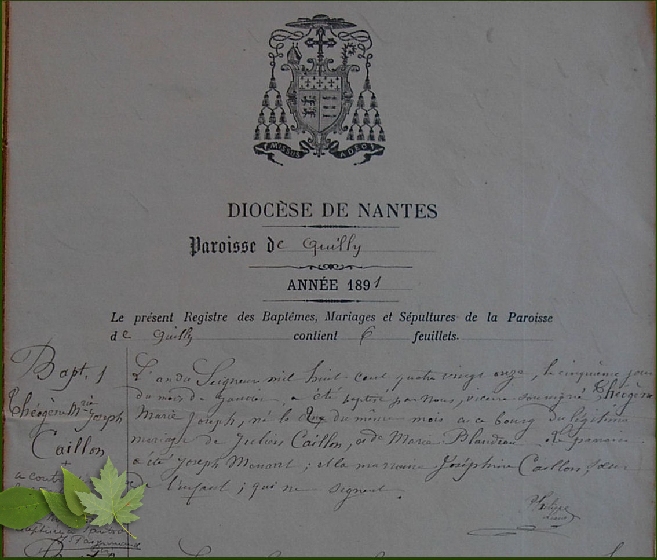 MISSUS A DEO
DIOCÈSE DE NANTES
Paroisse de Quilly
ANNÉE 1891
Le présent Registre des Baptêmes, Mariages et Sépultures de la Paroisse
de Quilly contient 6 feuillets.
Bapt. 1
Théogène Mie Joseph
Caillon
a cont
L'an du Seigneur mil huit cent quatre vingt onze, le cinquième jour
du mois de janvier, a été baptisé par nous, vicaire soussigné Théogène
Marie Joseph, né le du même mois au bourg du légitime
mariage de Julien Caillon, et de Marie Blandeau le parrain
a été Joseph Menant; et la marraine Joséphine Caillon, sœur
de l'enfant; qui ne signent.